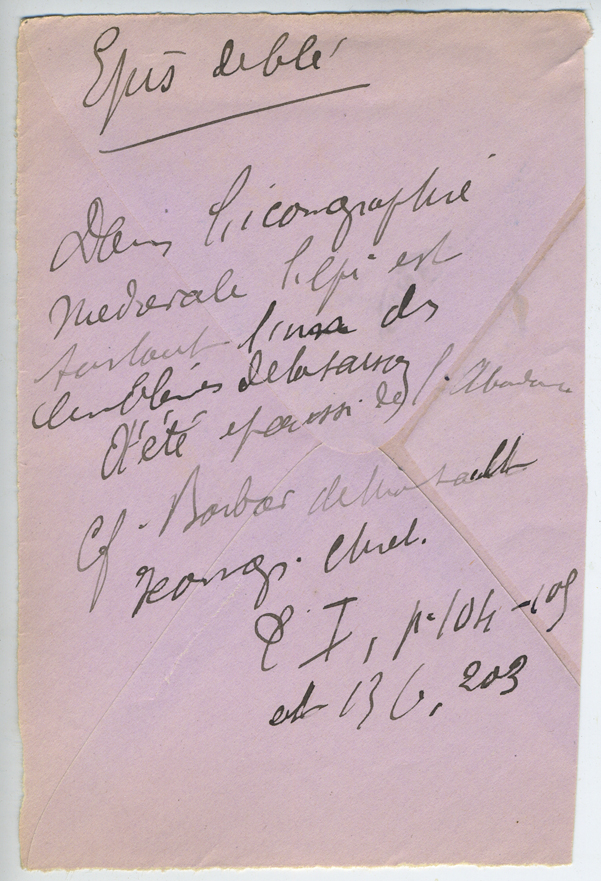 Epis de blé
Dans l'iconographie
medievale l'epi est
surtout l'un des
emblèmes de la saison
d'été et aussi de l'Abondance
Cf. Barbier de Montault
Iconog. Chret.
T I, p. 104-105
et 136, 203